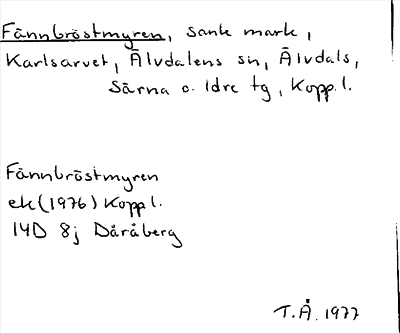 Fännbröstmyren, sank mark,
Karlsarvet, Älvdalens sn, Älvdals,
Särna o. Idre tg, Kopp. l.
Fännbröstmyren
ek (1976) Kopp l.
14D 8j Dåråberg
T.Å. 1977